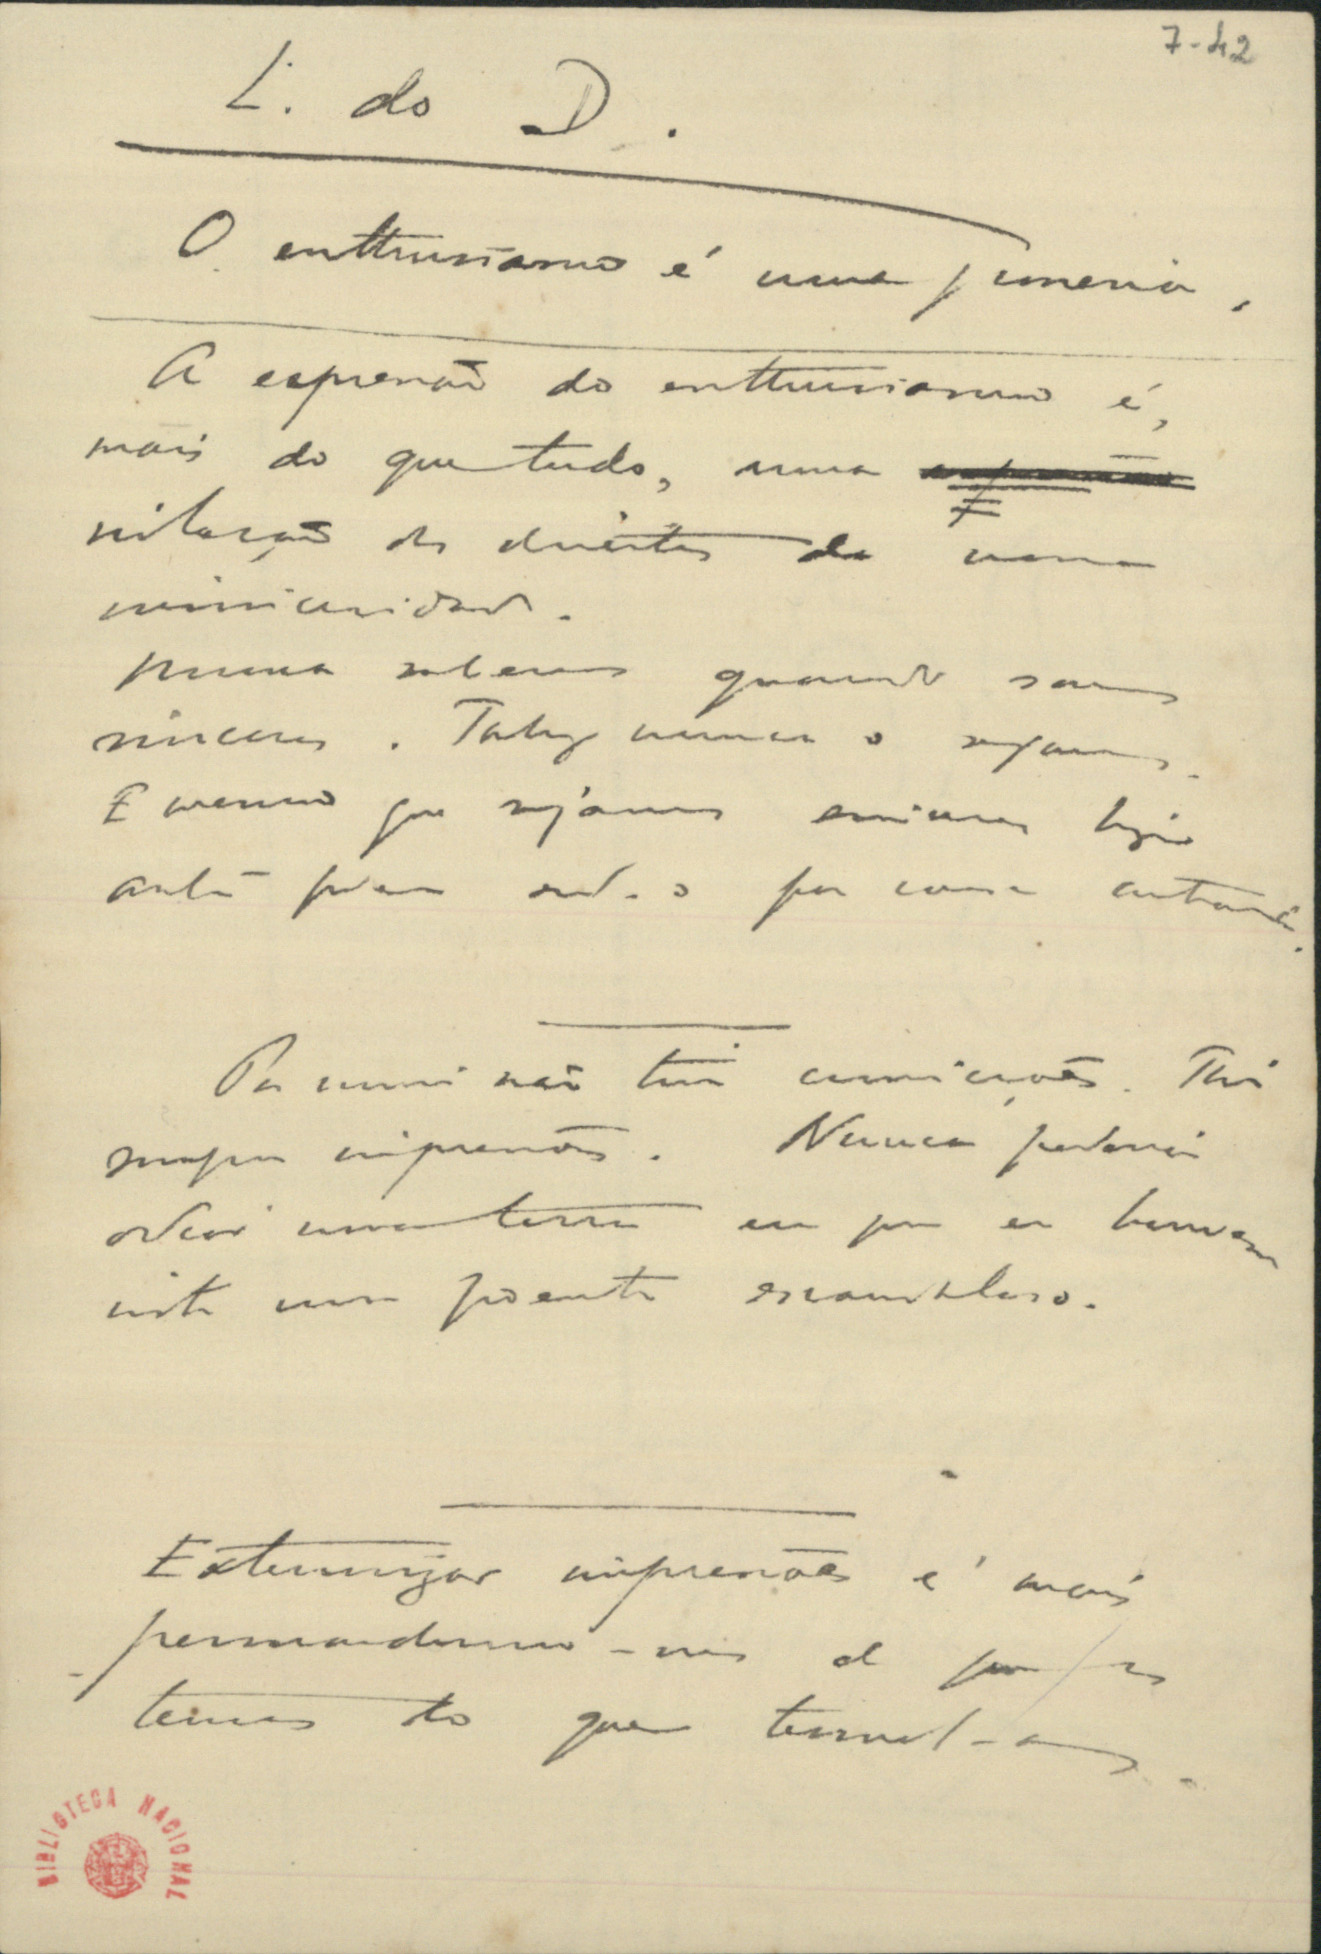 7-42
L. do D.
O enthusiasmo é uma
A expressão do enthusiasmo é,
mais do que tudo, uma
violação dos direitos da nossa
insinceridade.
Nunca sabemos quando somos
sinceros. Talvez nunca o sejamos.
E mesmo que sejamos sinceros hoje
amanhã podemos sel-o por cousa contraria.
Por mim não tive convicções. Tive
sempre impressões. Nunca poderia
odiar uma terra em que eu houvesse
visto um poente escandaloso.
Externizar impressões é mais
persuadirmo-nos de que as
temos do que termol-as.
BIBLIOTECA NACIONAL